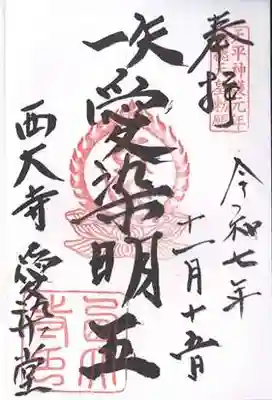 天平神護元年
奉拝
令和七年
十一月十五日
一矢
愛染明王
西大寺 愛染堂